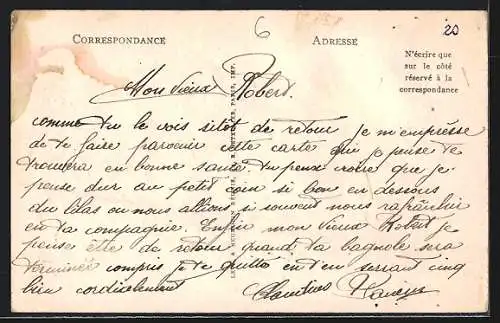 6
20
CORRESPONDANCE
ADRESSE
N'écrire que
sur le côté
réservé à la
correspondance
Mon Vieux Robert.
comme tu le vois sitôt de retour je m'empresse
de te faire parvenir cette carte qui je pense te
trouvera en bonne santé. tu peux croire que je
pense dur au petit coin si bon en dessous
du lilas ou nous allions si souvent nous rafraichir
en ta compagnie. Enfin mon Vieux Robert je
pense être de retour quand ta bagnole sera
terminée compris je te quitte en t'en serrant cinq
bien cordialement